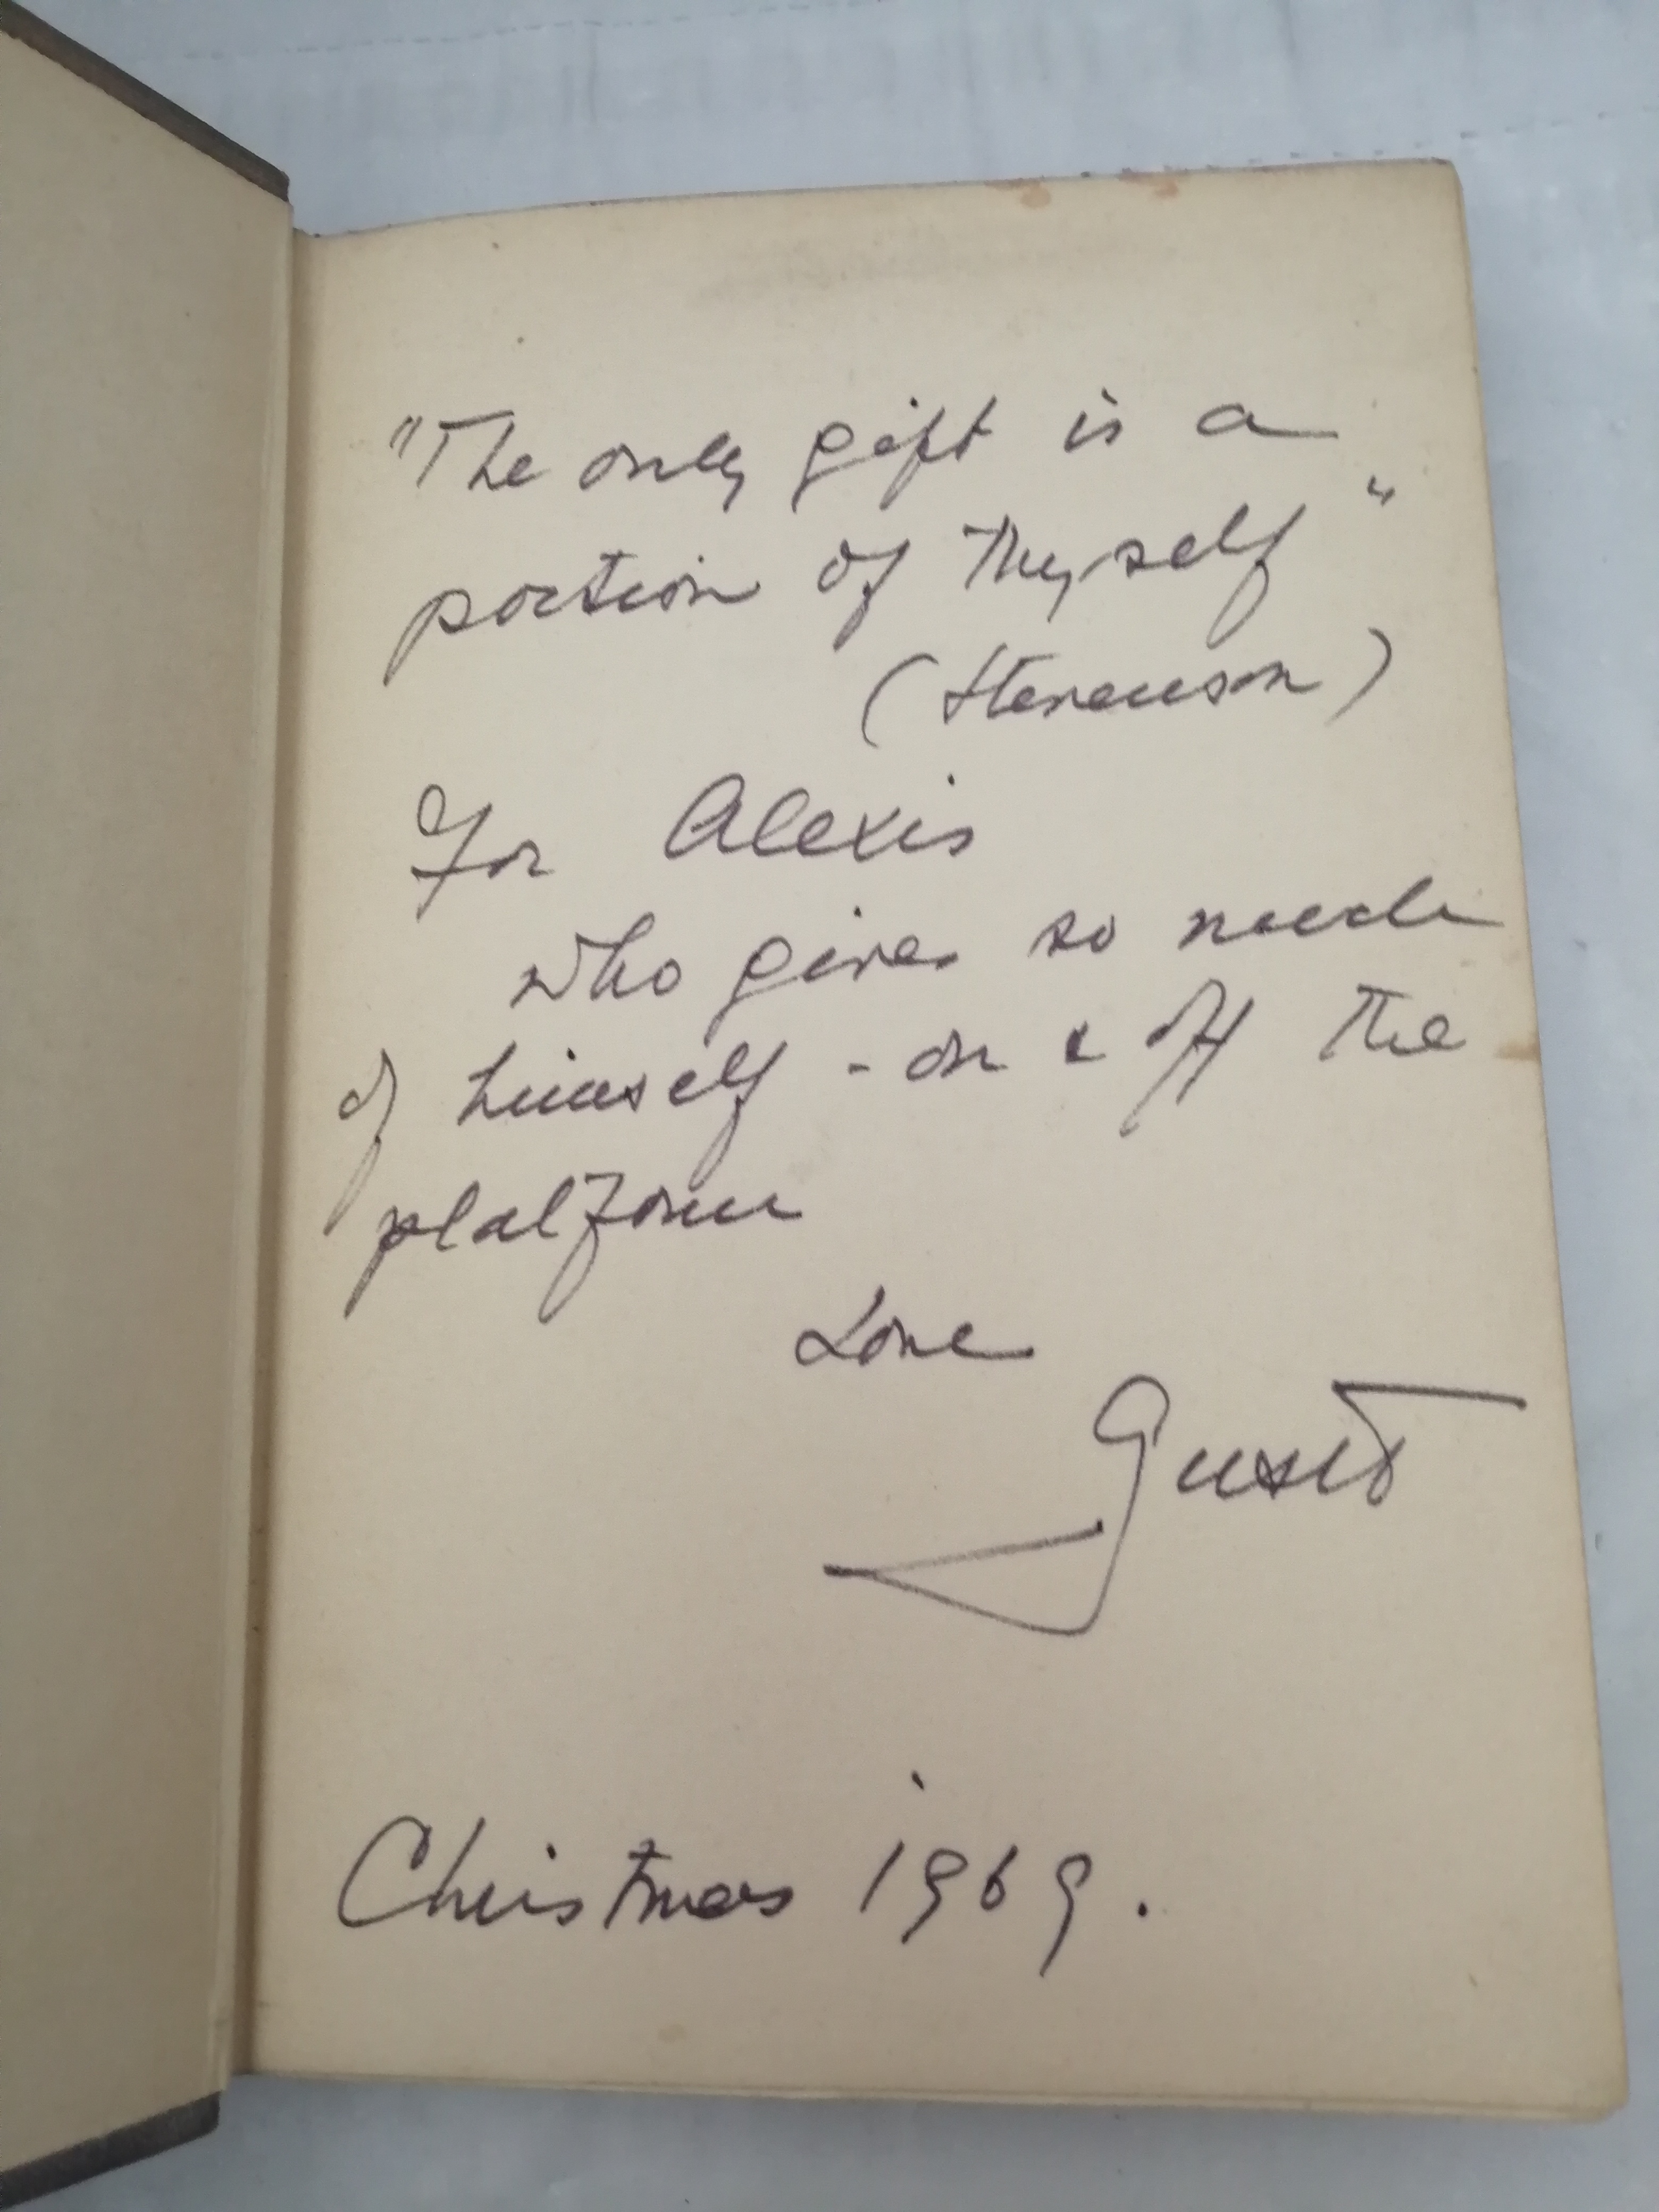 "The only gift is a
portion of Thyself"
(Stevenson)
For Alexis
who gives so much
of himself - on & off the
platform
Love
Christmas 1969.